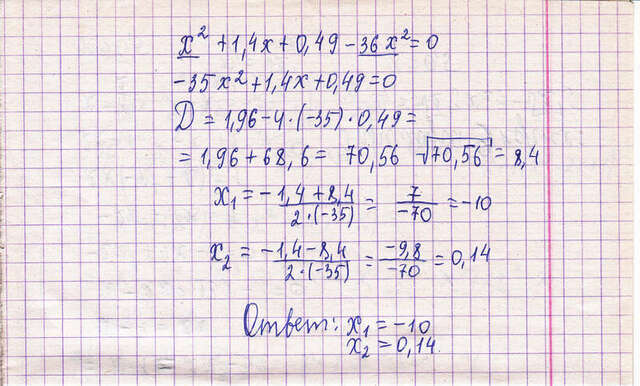 x² + 1,4x + 0,49 - 36x² = 0
-35x² + 1,4x + 0,49 = 0
D = 1,96 - 4·(-35)·0,49 =
= 1,96 + 68,6 = 70,56 √70,56 = 8,4
x₁ = -1,4 + 8,4 / 2·(-35) = 7 / -70 = -10
x₂ = -1,4 - 8,4 / 2·(-35) = -9,8 / -70 = 0,14
Ответ: x₁ = -10
x₂ = 0,14.